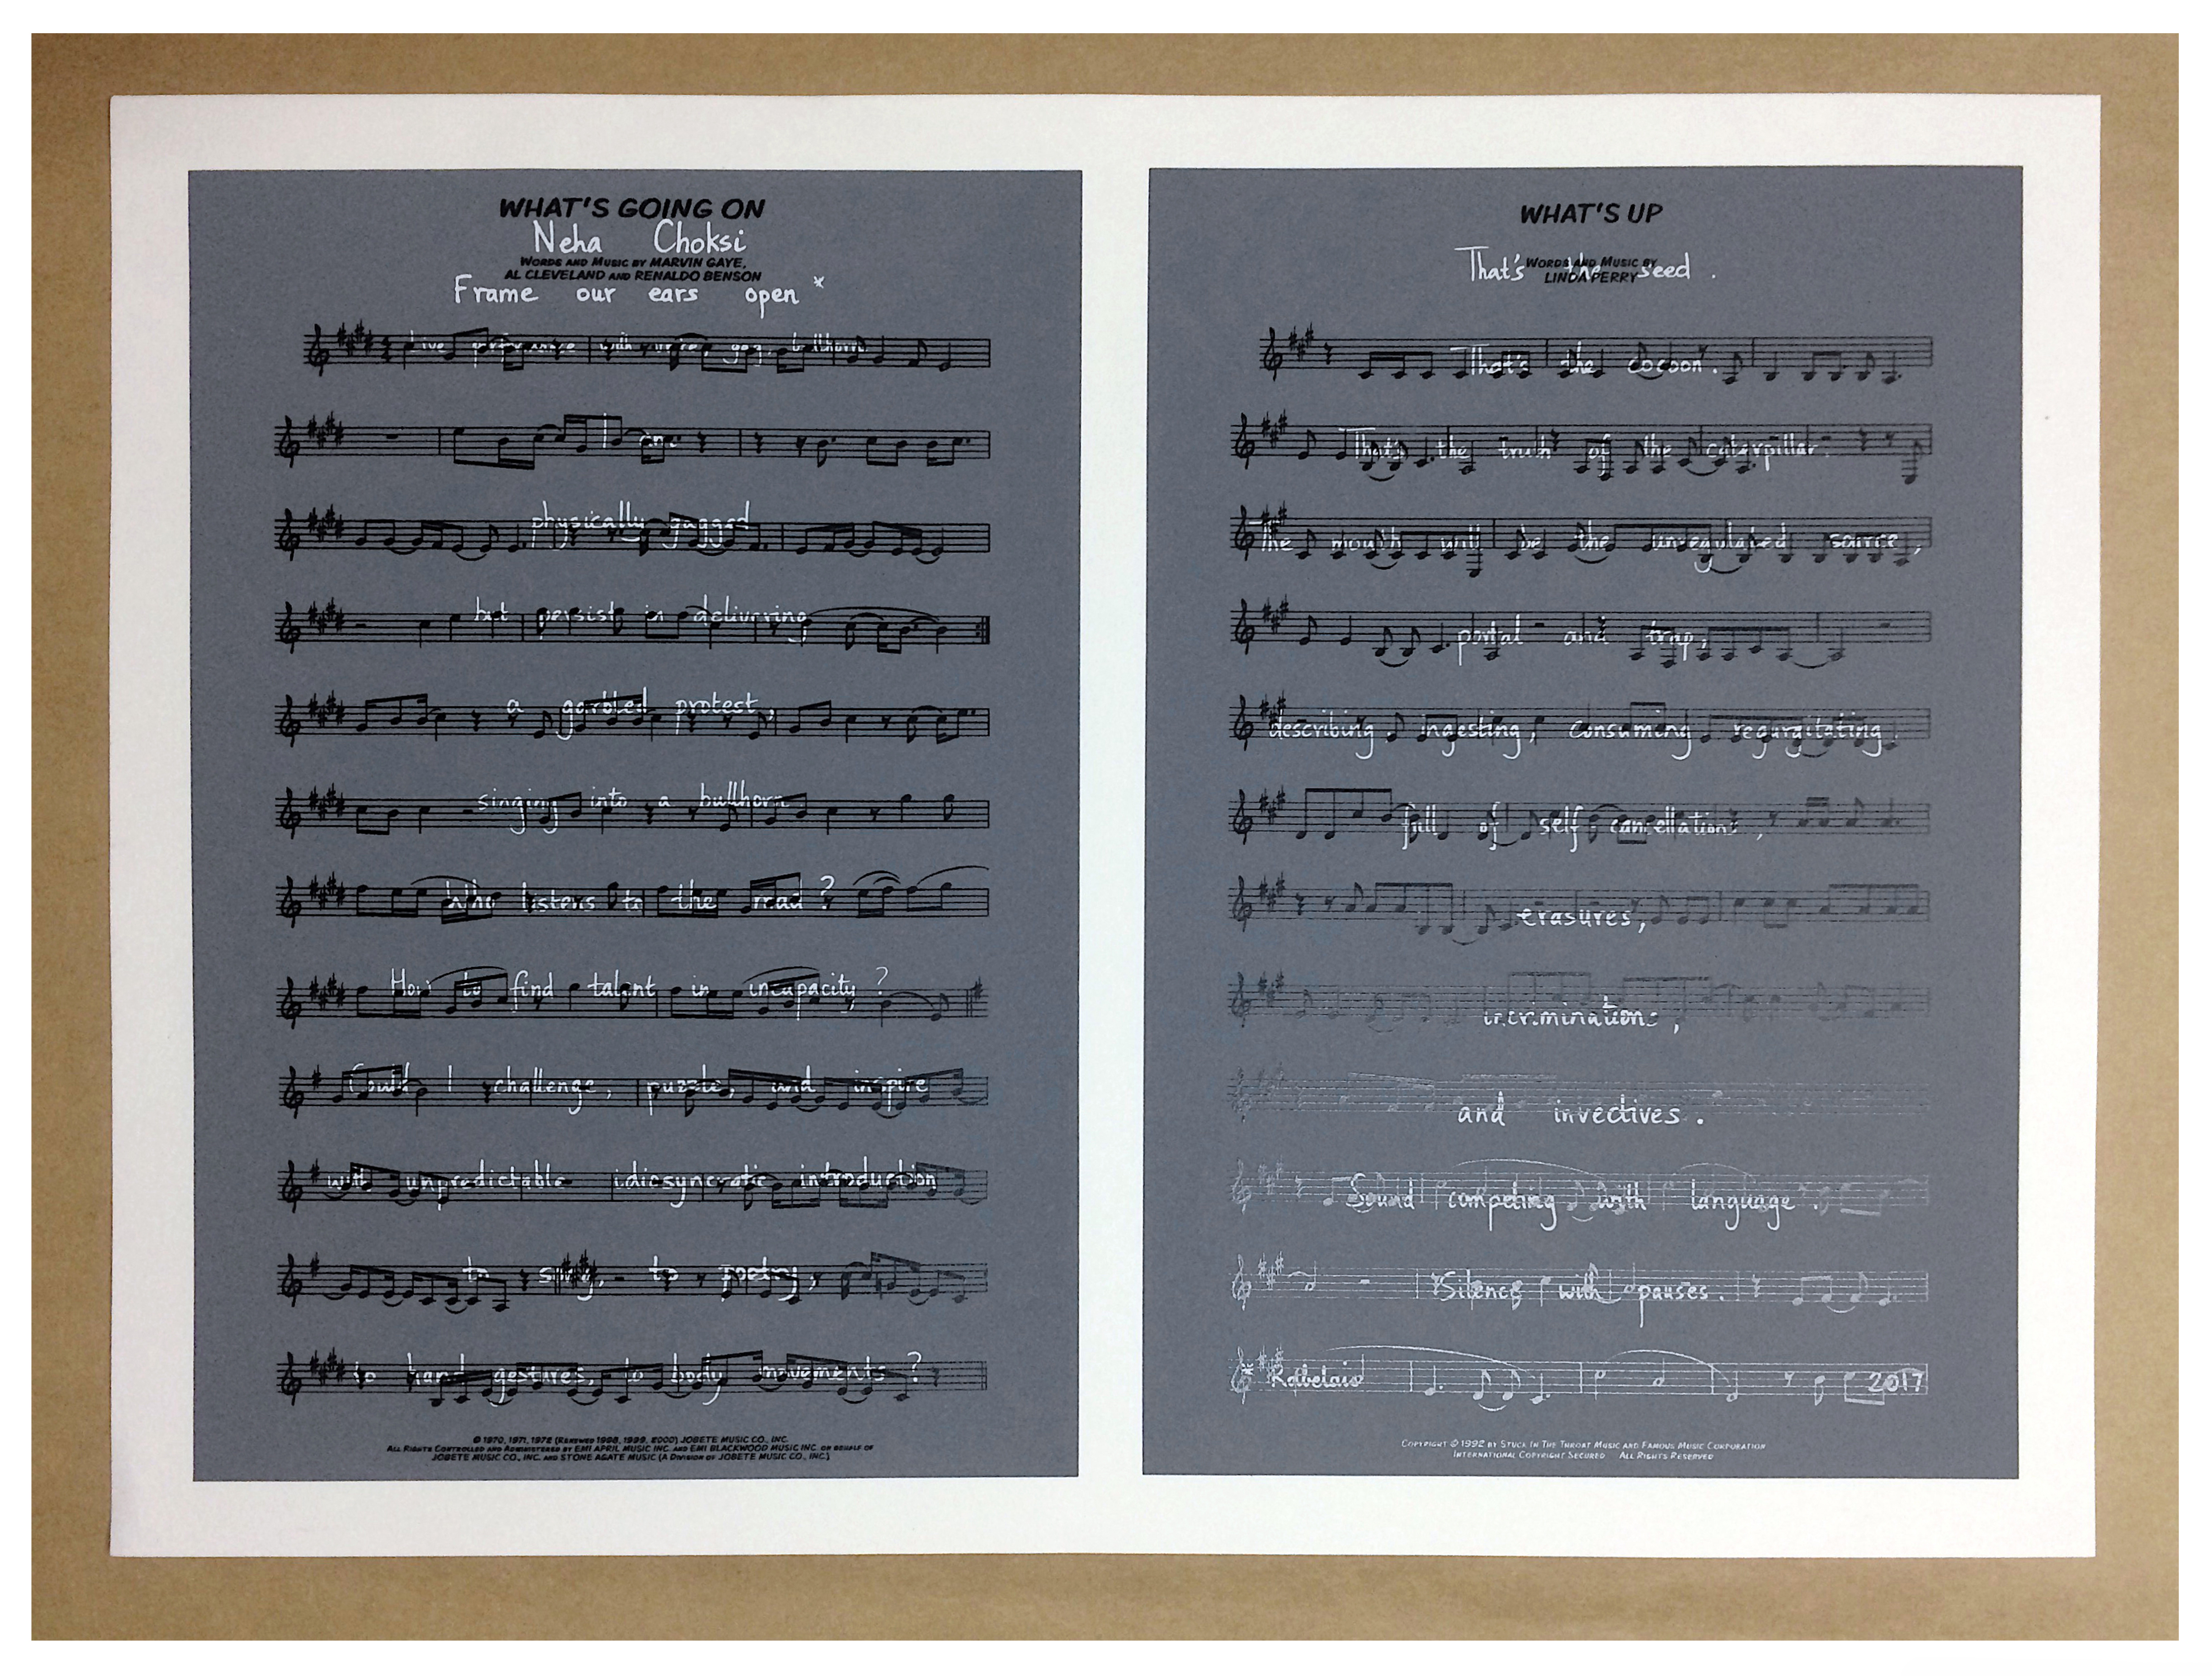 WHAT'S GOING ON
Neha Choksi
WORDS AND MUSIC BY MARVIN GAYE,
AL CLEVELAND AND RENALDO BENSON
Frame our ears open *
Live performance with mirror, gag, bullhorn
I am
physically gagged
but persist in delivering
a garbled protest,
singing into a bullhorn
Who listens to the read ?
How to find talent in incapacity ?
Could I challenge, puzzle, and inspire
with unpredictable idiosyncratic introduction
to song, to poetry,
to hand gestures, to body movements ?
© 1970, 1971, 1972 (RENEWED 1998, 1999, 2000) JOBETE MUSIC CO., INC.
ALL RIGHTS CONTROLLED AND ADMINISTERED BY EMI APRIL MUSIC INC. AND EMI BLACKWOOD MUSIC INC. ON BEHALF OF
JOBETE MUSIC CO., INC. AND STONE AGATE MUSIC (A DIVISION OF JOBETE MUSIC CO., INC.)
WHAT'S UP
WORDS AND MUSIC BY
That's the seed .
LINDA PERRY
That's the cocoon .
That's the truth of the caterpillar.
The mouth will be the unregulated source,
portal and trap,
describing, ingesting, consuming, regurgitating.
full of self cancellations,
erasures,
incriminations,
and invectives .
Sound competing with language .
Silence with pauses .
* Rabelais 2017
COPYRIGHT © 1992 BY STUCK IN THE THROAT MUSIC AND FAMOUS MUSIC CORPORATION
INTERNATIONAL COPYRIGHT SECURED ALL RIGHTS RESERVED